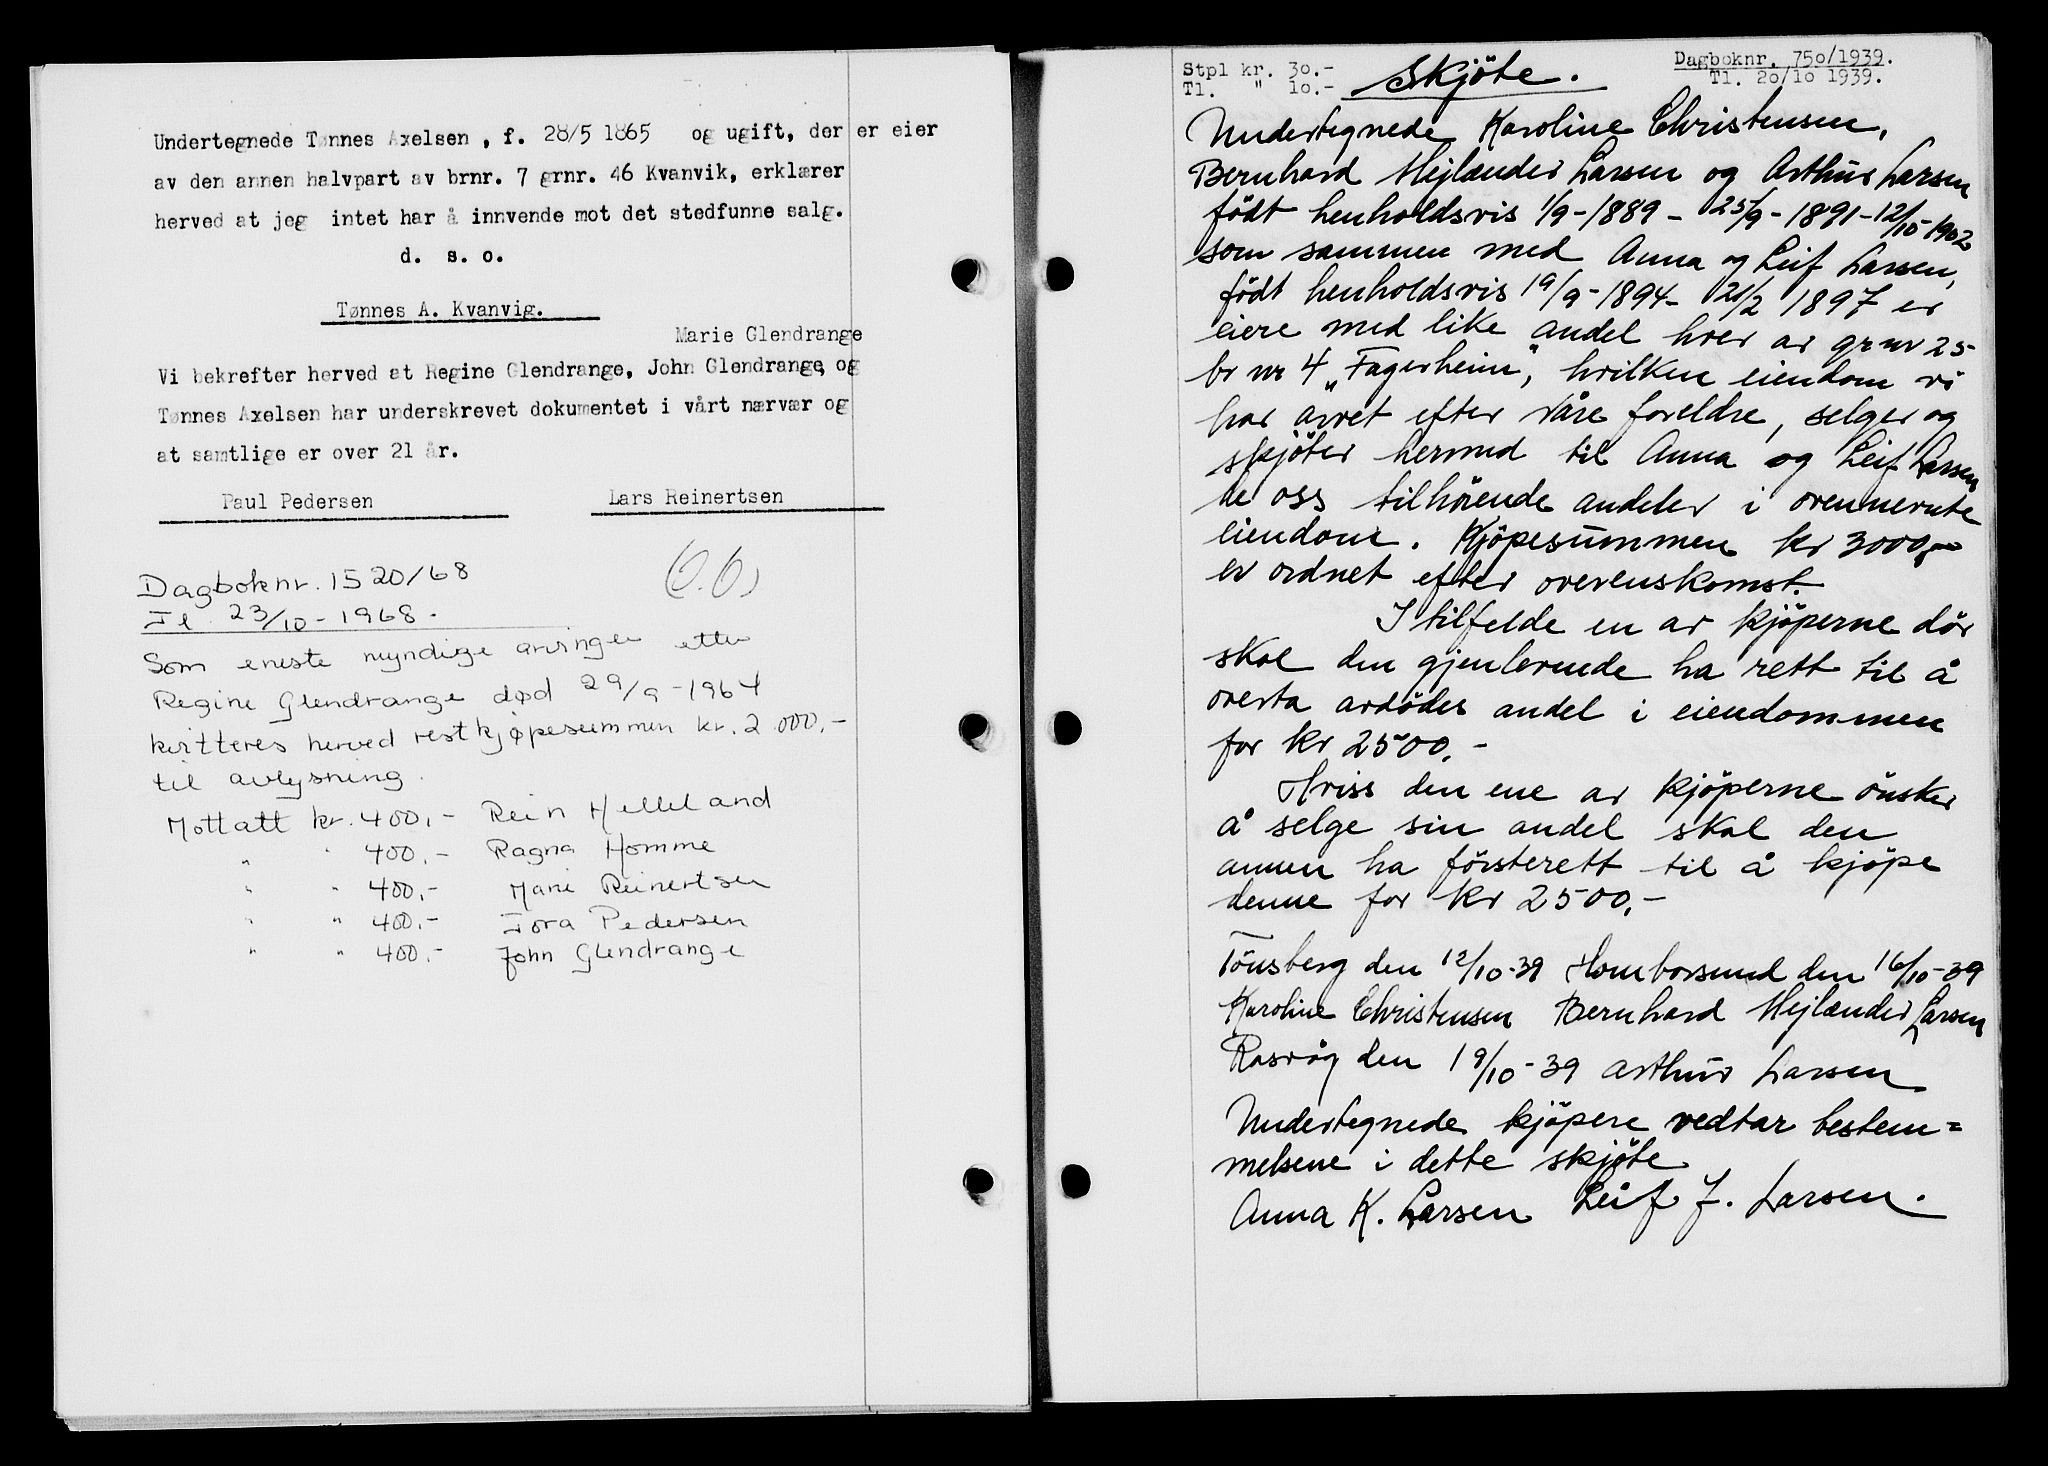 Undertegnede Tønnes Axelsen , f. 28/5 1865 og ugift, der er eier
av den annen halvpart av brnr. 7 grnr. 46 Kvanvik, erklærer
herved at jeg intet har å innvende mot det stedfunne salg.
d. s. o.
Tønnes A. Kvanvig.
Marie Glendrange
Vi bekrefter herved at Regine Glendrange, John Glendrange, og
Tønnes Axelsen har underskrevet dokumentet i vårt nærvær og
at samtlige er over 21 år.
Paul Pedersen Lars Reinertsen
Dagboknr. 1520/68
Tl. 23/10 - 1968.
Som eneste myndige arvinger etter
Regine Glendrange død 29/9 - 1964
kvitteres herved restkjøpesummen kr. 2 000,-
til avlysning.
Mottatt kr. 400,- Rein Helleland
" " 400,- Ragna Homme
" " 400,- Marie Reinertsen
" " 400,- Tora Pedersen
" " 400,- John Glendrange
Stpl kr. 30.- Skjöte. Dagboknr. 750/1939.
Tl. " 10.- Tl. 20/10 1939.
Undertegnede Karoline Christensen,
Bernhard Mejlænder Larsen og Arthur Larsen
födt henholdsvis 1/9-1889 - 25/9-1891 - 12/10-1902
som sammen med Anna og Leif Larsen,
födt henholdsvis 19/9-1894 - 21/2 1897 er
eiere med like andel hver av gr nr 25
br nr 4 „Fagerheim", hvilken eiendom vi
har arvet efter våre foreldre, selger og
skjöter hermed til Anna og Leif Larsen
de oss tilhörende andeler i ovennevnte
eiendom. Kjöpesummen kr 3000,-
er ordnet efter overenskomst.
I tilfelde en av kjöperne dör
skal den gjenlevende ha rett til å
overta avdödes andel i eiendommen
for kr 2500.-
Hviss den ene av kjöperne önsker
å selge sin andel skal den
annen ha försterett til å kjöpe
denne for kr 2500,-
Tönsberg den 12/10-39 Homborsund den 16/10-39
Karoline Christensen Bernhard Mejlænder Larsen
Rosvåg den 19/10-39 Arthur Larsen
Undertegnede kjöpere vedtar bestem=
melsene i dette skjöte
Anna K. Larsen Leif J. Larsen.